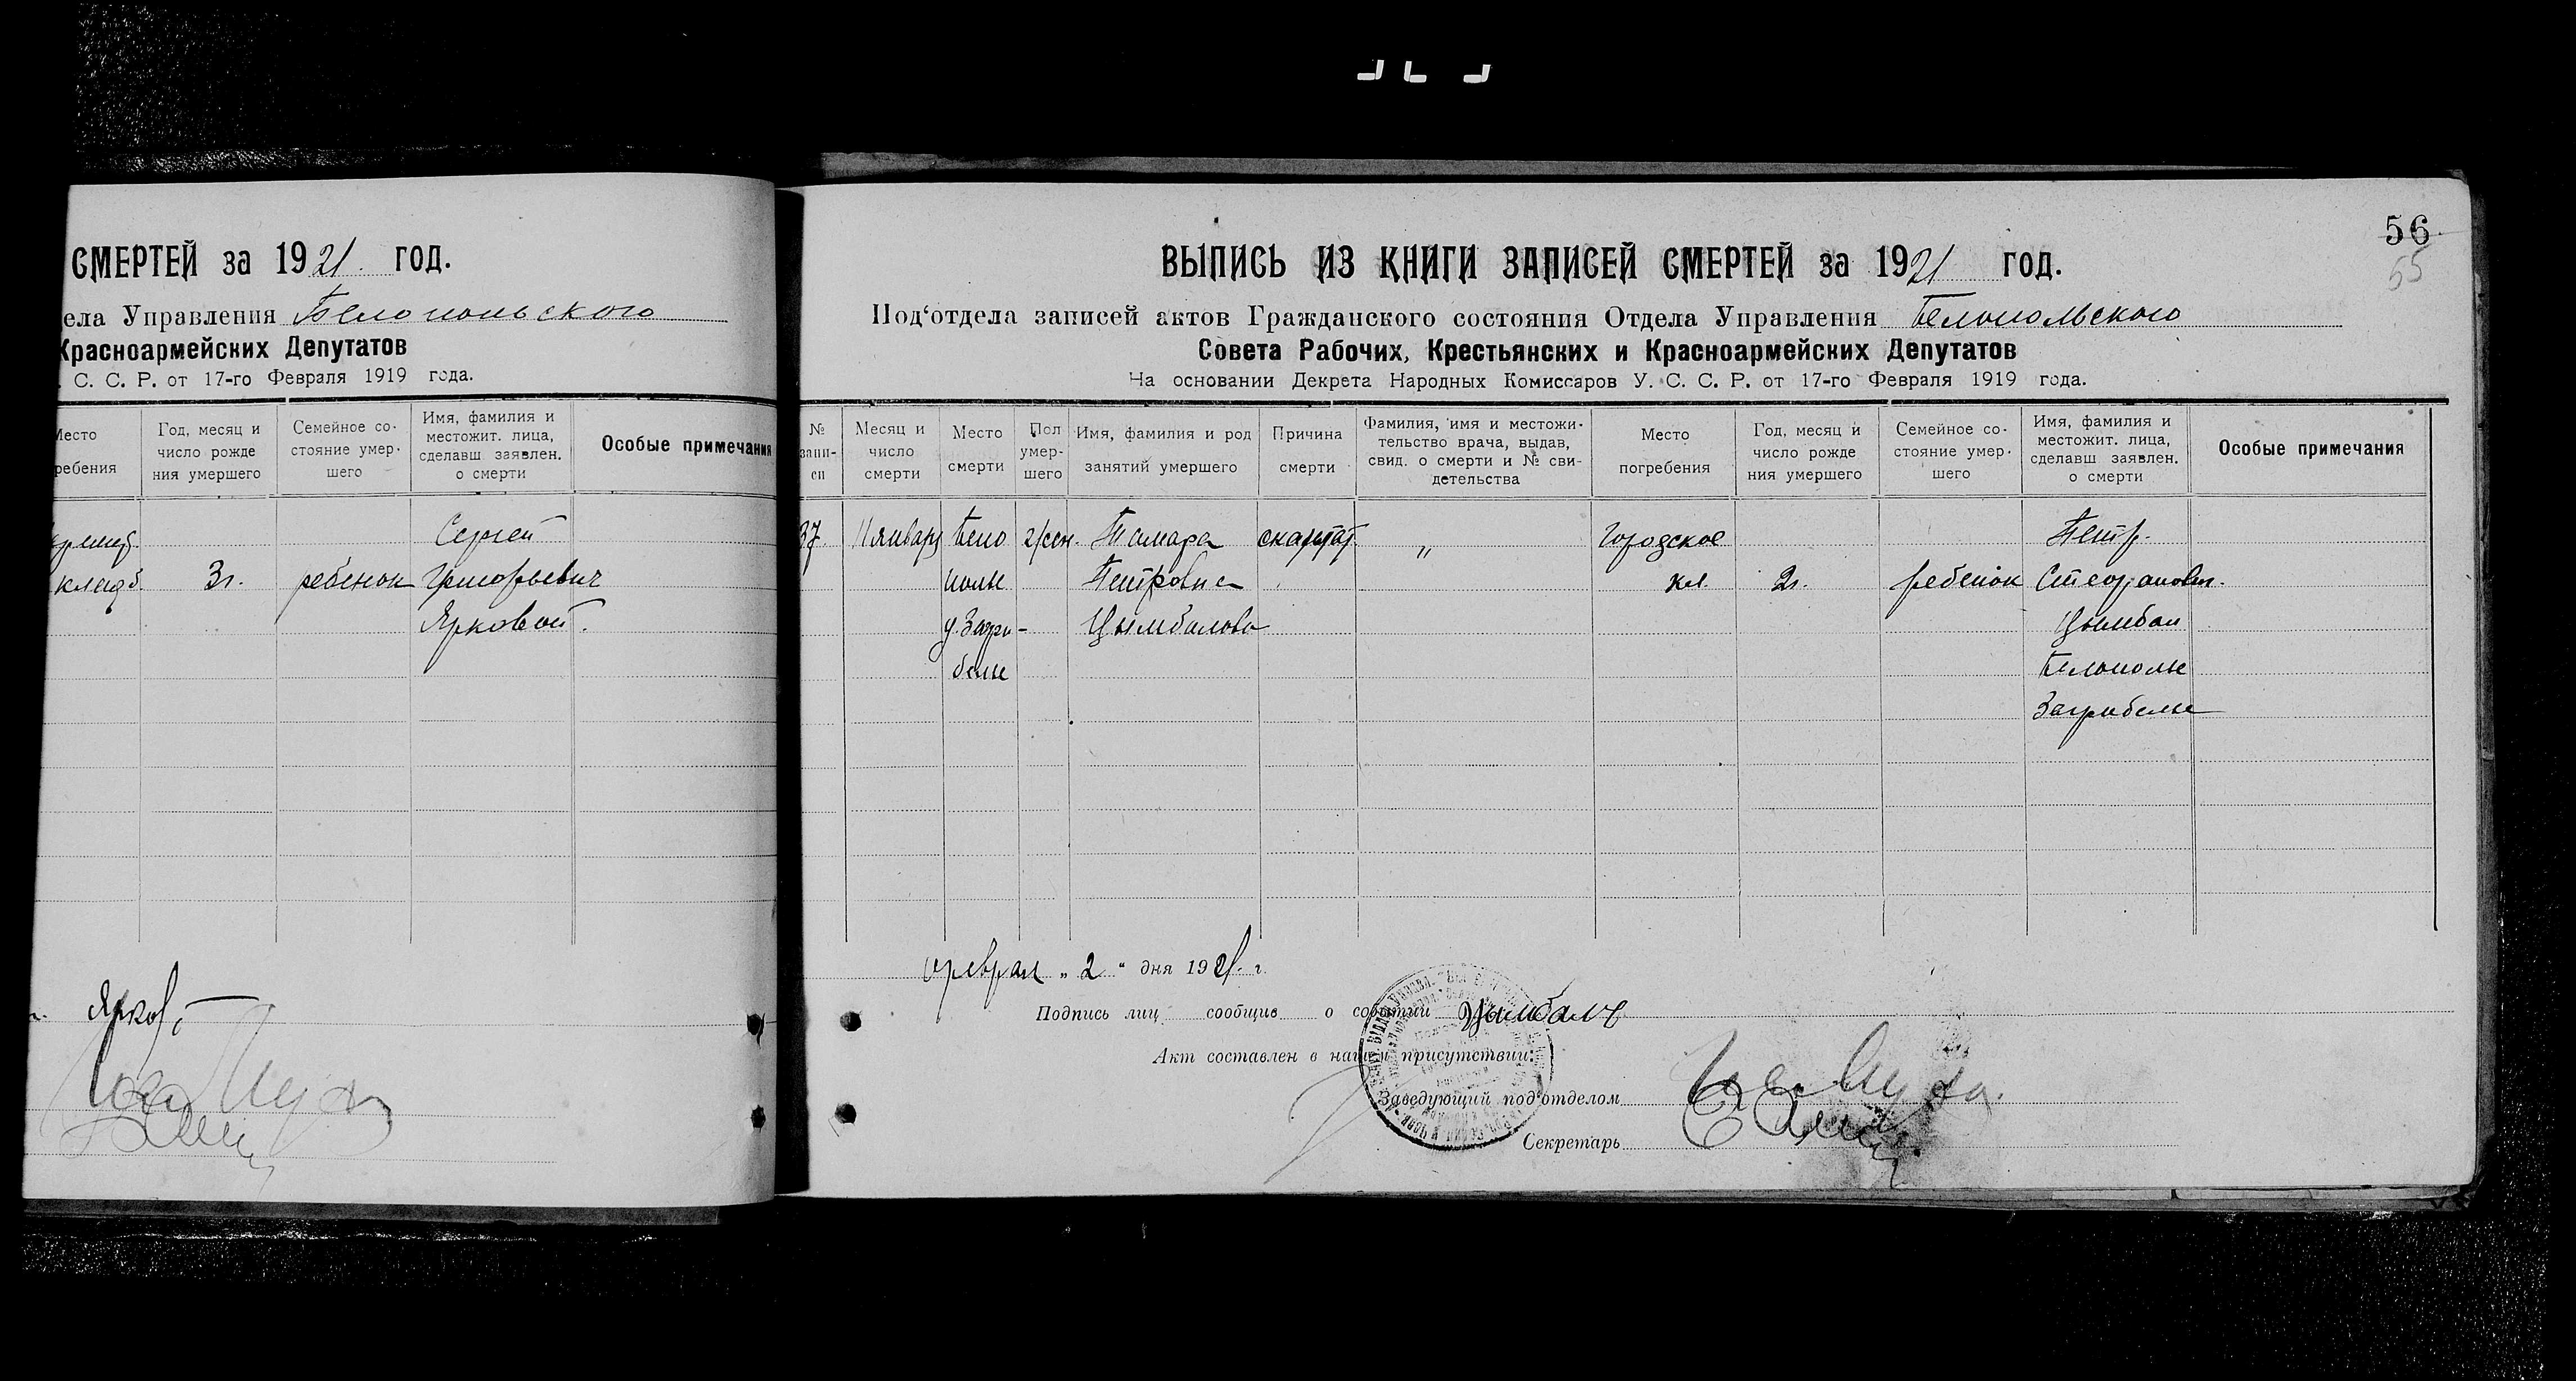 СМЕРТЕЙ за 1921 год.
ела Управления Белопольского
Красноармейских Депутатов
. С. С. Р. от 17-го Февраля 1919 года.
Место
ребения
Год, месяц и
число рожде
ния умершего
Семейное со-
стояние умер-
шего
Имя, фамилия и
местожит. лица,
сделавш заявлен.
о смерти
Особые примечания
кладб.
3г.
ребенок
Сергей
Григорьевич
Ярковой.
56
55
ВЫПИСЬ ИЗ КНИГИ ЗАПИСЕЙ СМЕРТЕЙ за 1921 год.
Под‘отдела записей актов Гражданского состояния Отдела Управления Белопольского
Совета Рабочих, Крестьянских и Красноармейских Депутатов
На основании Декрета Народных Комиссаров У. С. С. Р. от 17-го Февраля 1919 года.
№
запи-
си
Месяц и
число
смерти
Место
смерти
Пол
умер-
шего
Имя, фамилия и род
занятий умершего
Причина
смерти
Фамилия, имя и местожи-
тельство врача, выдав,
свид. о смерти и № сви-
детельства
Место
погребения
Год, месяц и
число рожде
ния умершего
Семейное со-
стояние умер-
шего
Имя, фамилия и
местожит. лица,
сделавш заявлен.
о смерти
Особые примечания
37.
11 январ
Бело
полье
у. Загри-
белье
жен.
Тамара
Петровна
Цымбалова
скарлат.
„
Городское
кл.
2г.
ребенок
Петр.
Стефанович.
Цымбал
Белополье
Загрибелье
феврал „ 2 “ дня 1921. г.
Подпись лиц сообщив о событии Цымбалъ
Акт составлен в нашем присутствии:
Заведующий под‘отделом
Секретарь